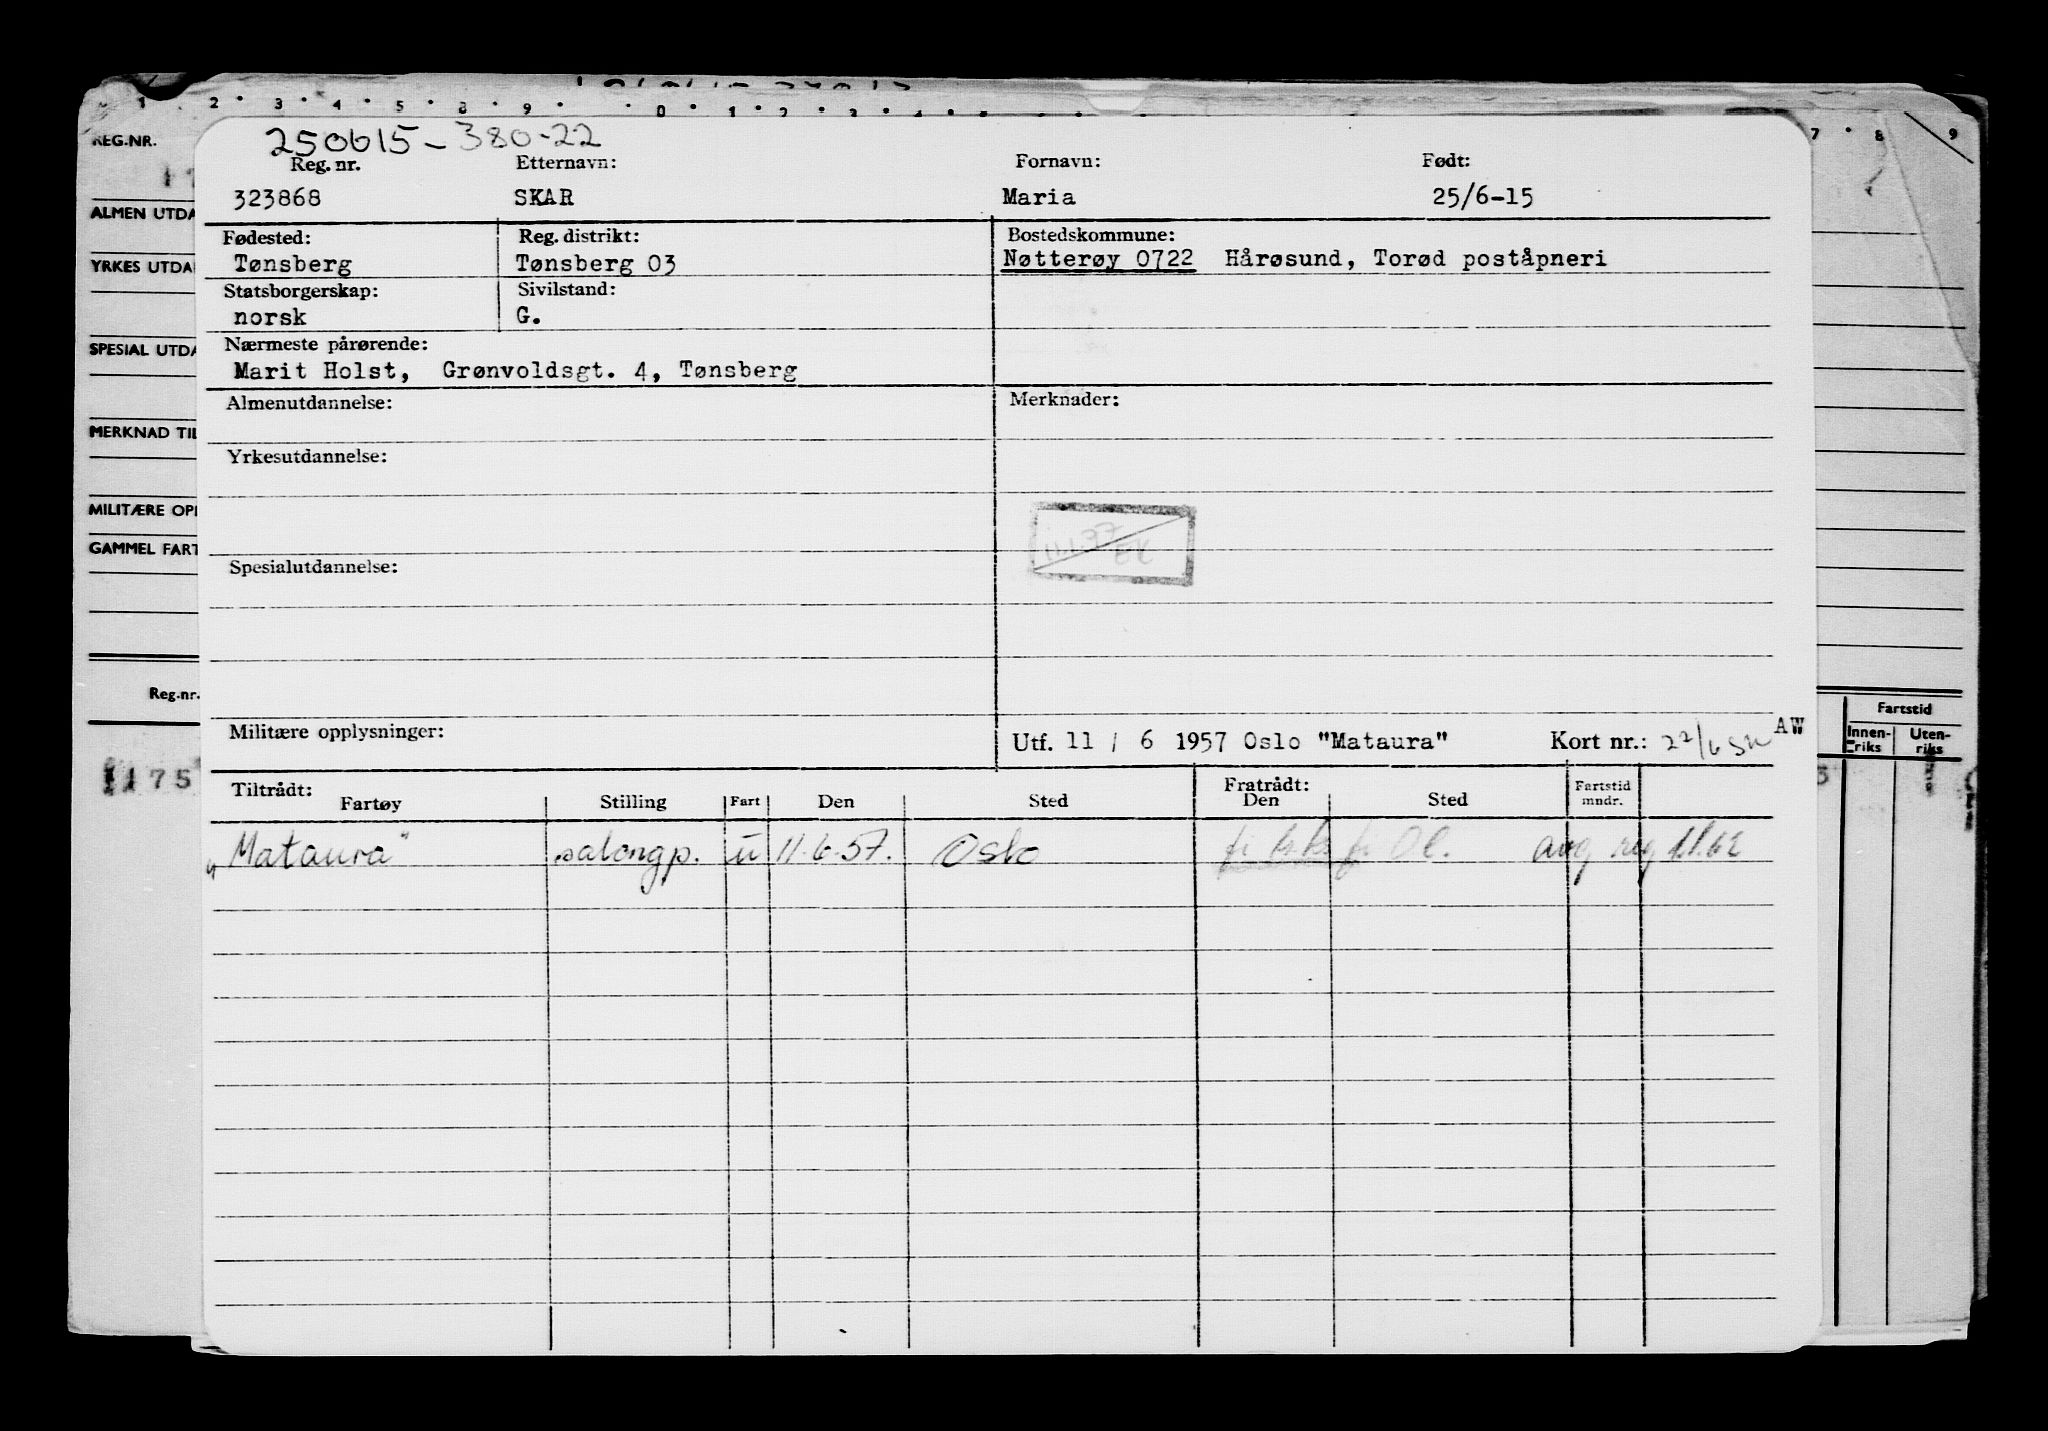 1 2 3 4 5 8 9 0 1 2 3 4 5 7 8 9
REG.NR.
ALMEN UTDA
YRKES UTDA
SPESIAL UTDA
MERKNAD TIL
MILITÆRE OPP
GAMMEL FART
Reg.nr.
1175
250615-380-22
Reg. nr. Etternavn: Fornavn: Født:
323868 SKAR Maria 25/6-15
Fødested: Reg. distrikt: Bostedskommune:
Tønsberg Tønsberg 03 Nøtterøy 0722 Hårøsund, Torød poståpneri
Statsborgerskap: Sivilstand:
norsk G.
Nærmeste pårørende:
Marit Holst, Grønvoldsgt. 4, Tønsberg
Almenutdannelse: Merknader:
Yrkesutdannelse:
EK
Spesialutdannelse:
Militære opplysninger: Utf. 11 / 6 1957 Oslo "Mataura" Kort nr.: 22/6 SK AW
Tiltrådt: Fratrådt:
Fartøy Stilling Fart Den Sted Den Sted Fartstid mndr.
"Mataura" salongp. u 11.6.57. Oslo avg reg 1.1.62
Fartstid
Innen-riks Uten-riks